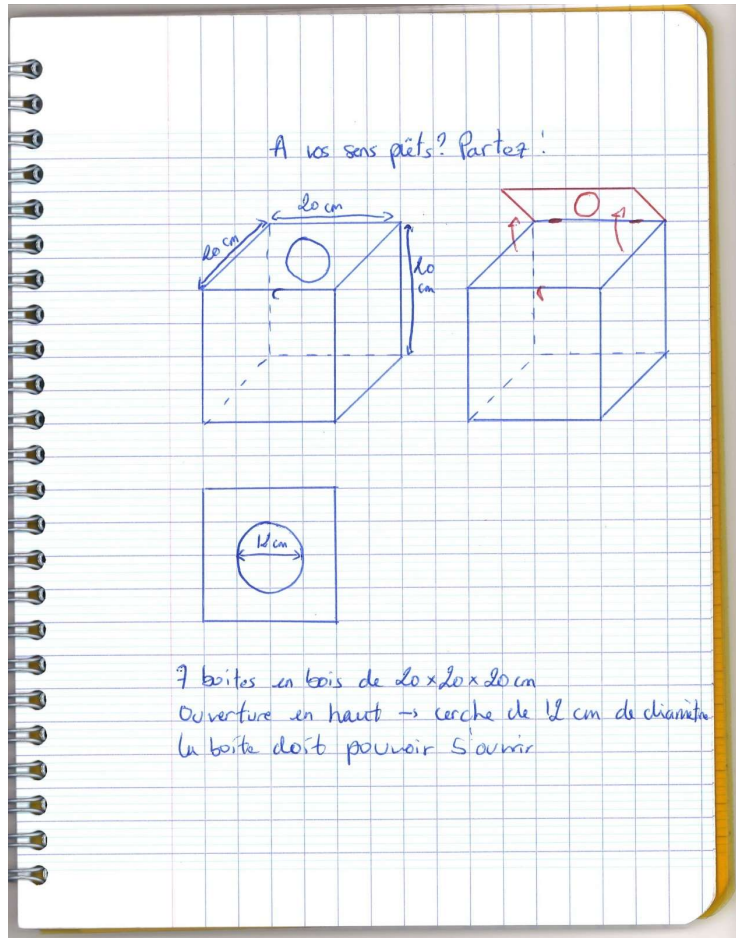 A vos sens prêts? Partez!
20 cm
20 cm
20 cm
12 cm
7 boîtes en bois de 20 x 20 x 20 cm
Ouverture en haut → cercle de 12 cm de diamètre
la boîte doit pouvoir s'ouvrir